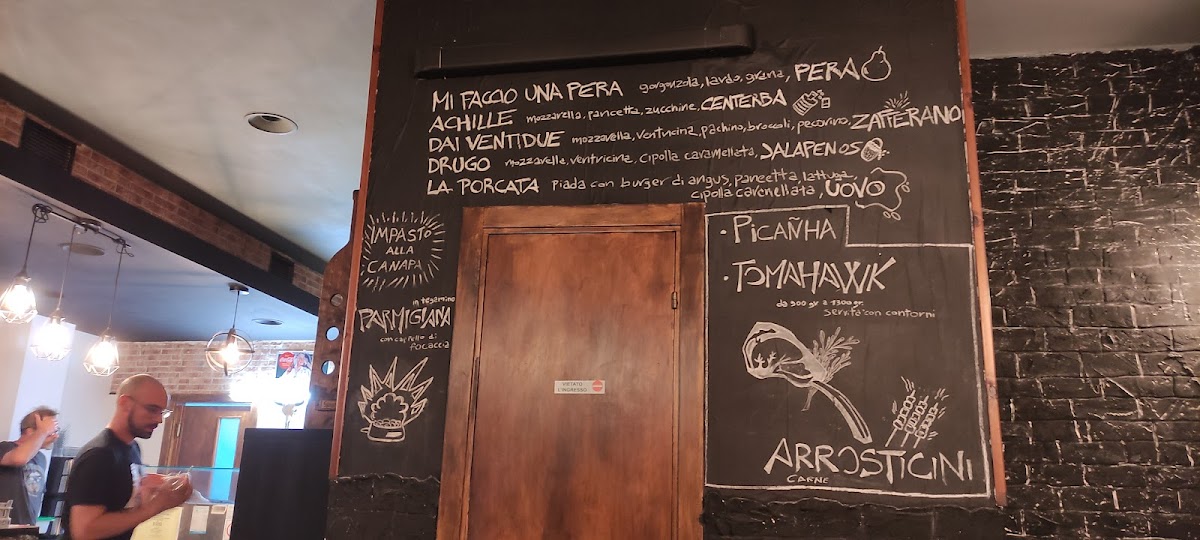 MI FACCIO UNA PERA gorgonzola, lardo, grana, PERA
ACHILLE mozzarella, pancetta, zucchine, CENTERBA
DAI VENTIDUE mozzarella, ventricina, pachino, broccoli, pecorino, ZAFFERANO
DRUGO mozzarella, ventricina, cipolla caramellata, JALAPENOS
LA PORCATA piada con burger di angus, pancetta, lattuga,
cipolla caremellata, UOVO
IMPASTO
ALLA
CANAPA
in tegamino
PARMIGIANA
con cappello di
focaccia
VIETATO
L'INGRESSO
· PICAÑHA
· TOMAHAWK
da 900 gr. a 1300 gr.
servita con contorni
ARROSTICINI
CARNE